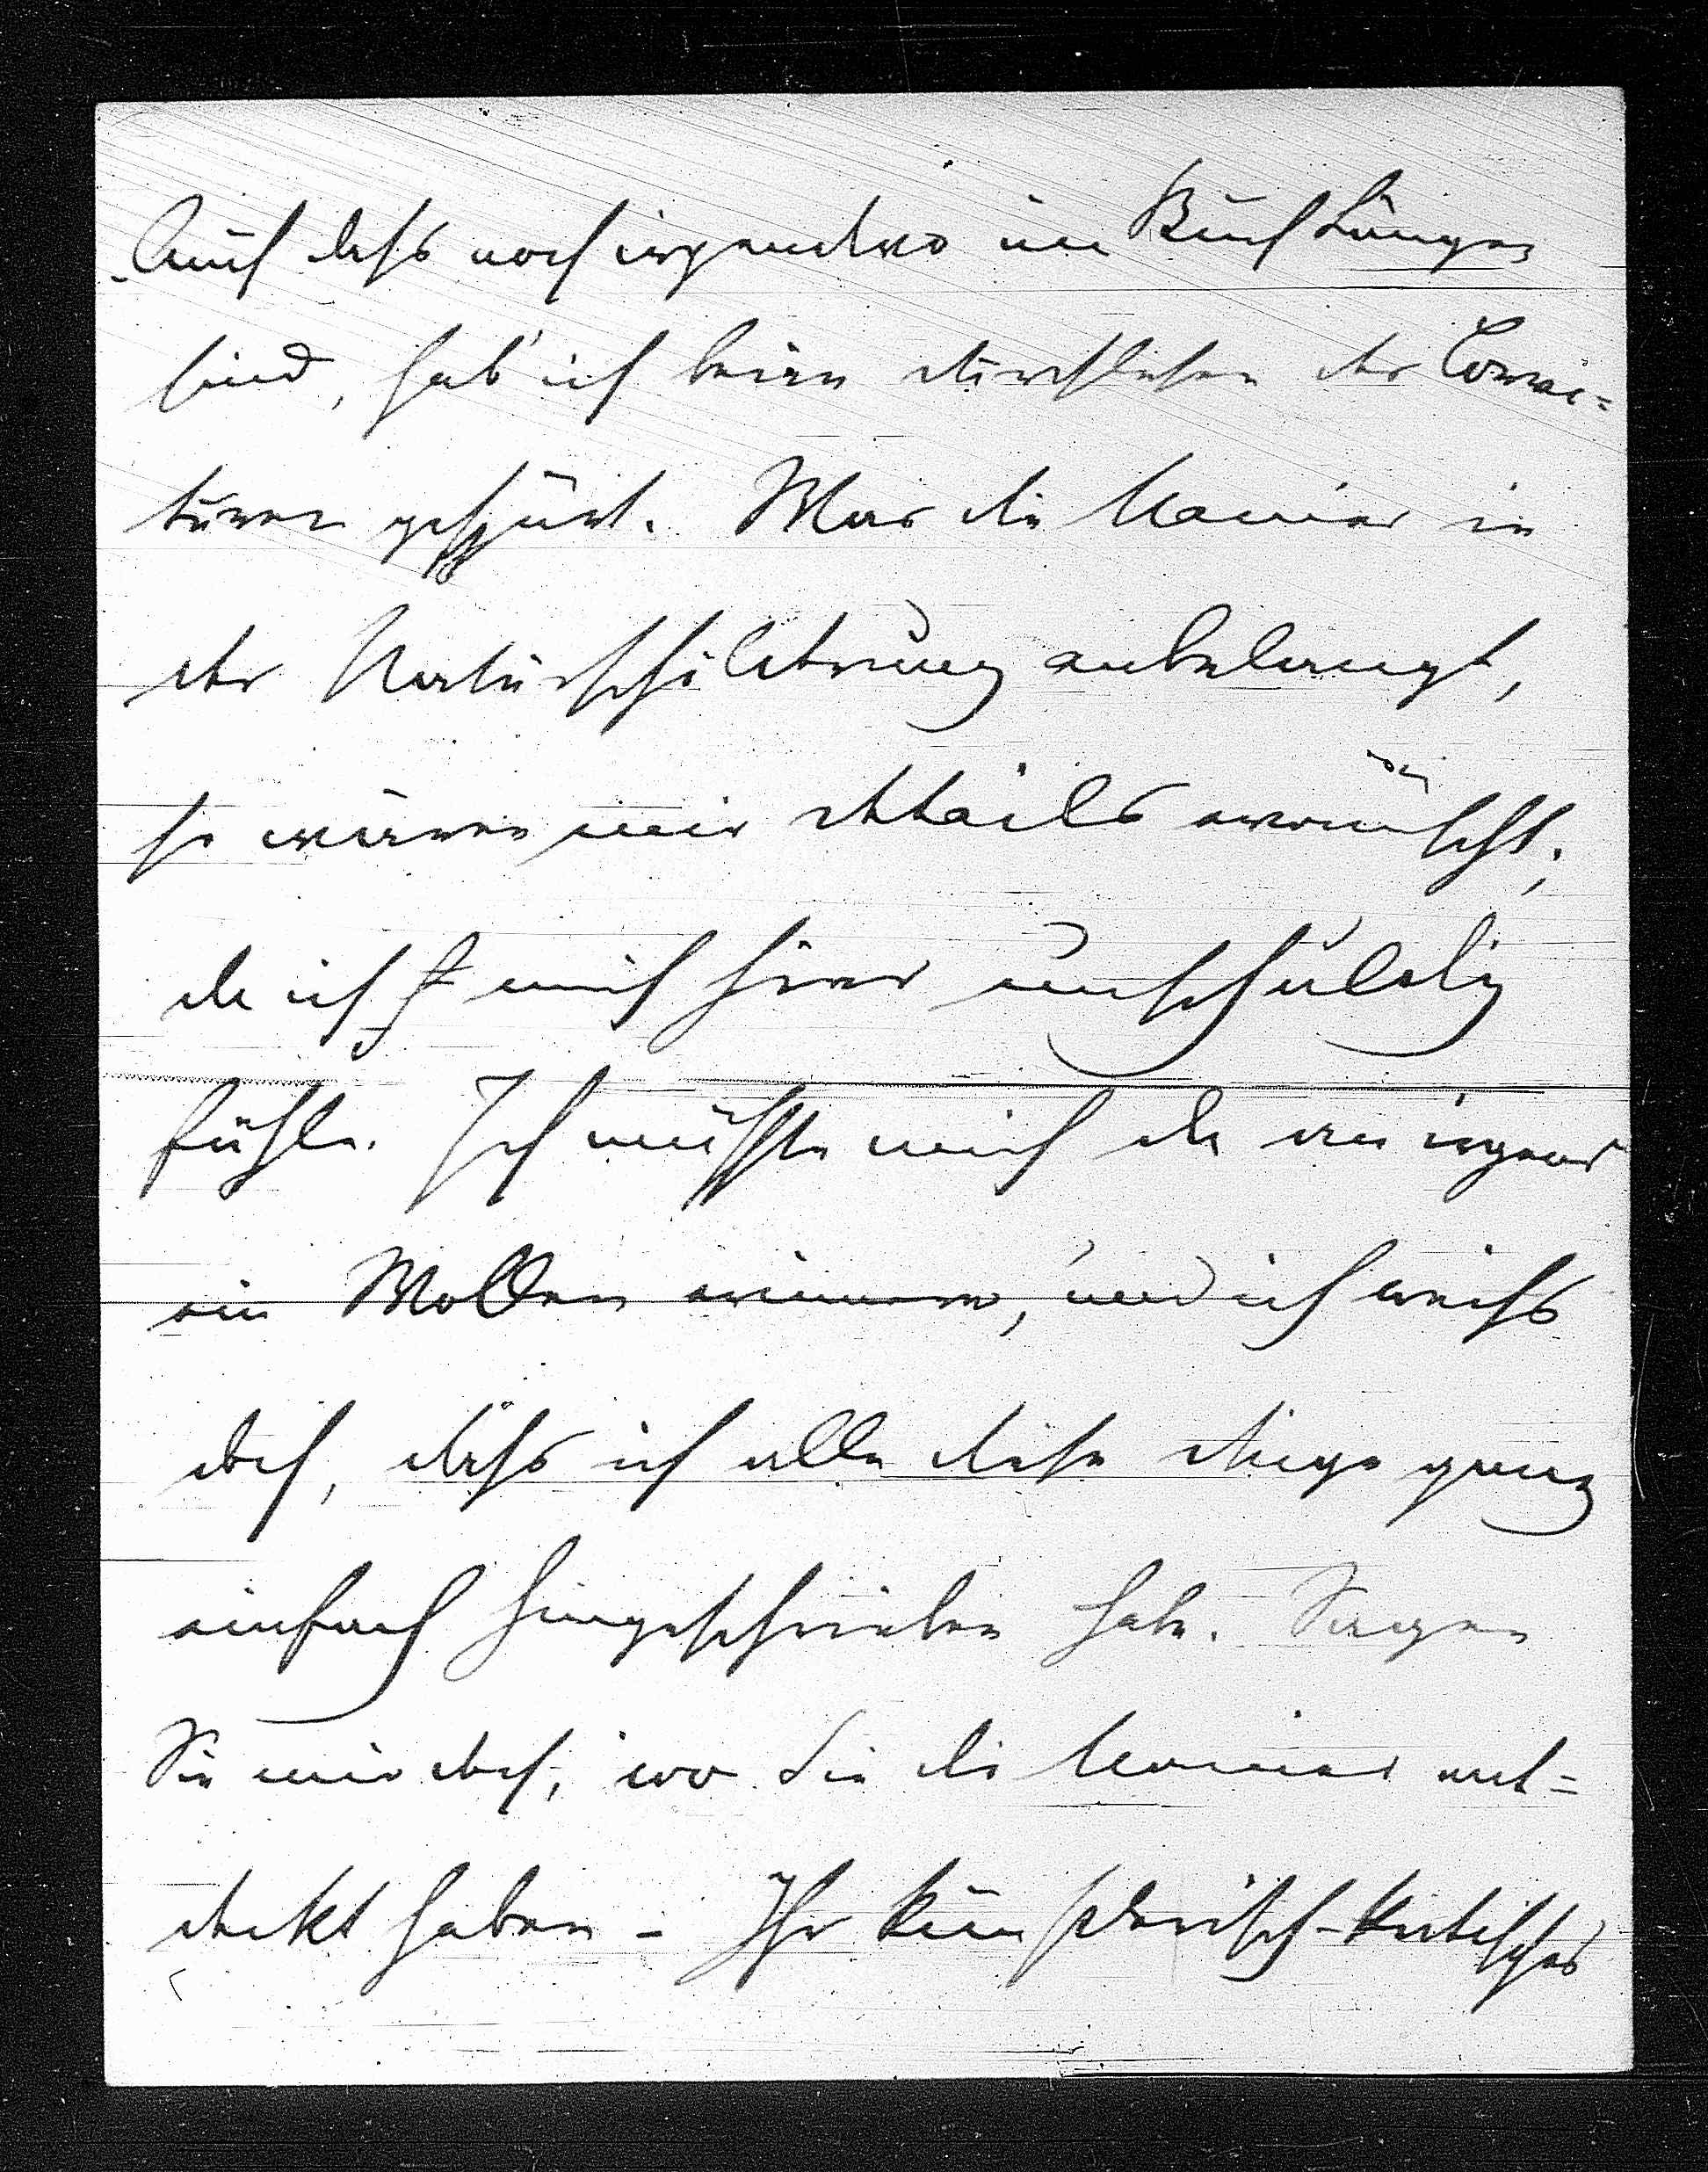 Auch dass noch irgendwo im Buch Längen
sind, hab' ich beim durchlesen der Correc=
turen gespürt. Was die Manier in
der Naturschilderung anbelangt,
so wären mir details erwünscht;
da ich mich hier unschuldig
fühle. Ich müsste mich da an irgend
ein Wollen erinnern, und ich weiss
doch, dass ich alle diese dinge ganz
einfach hingeschrieben habe. Sagen
Sie mir doch, wo Sie die Manier ent=
deckt haben – Ihr künstlerisch-kritisches